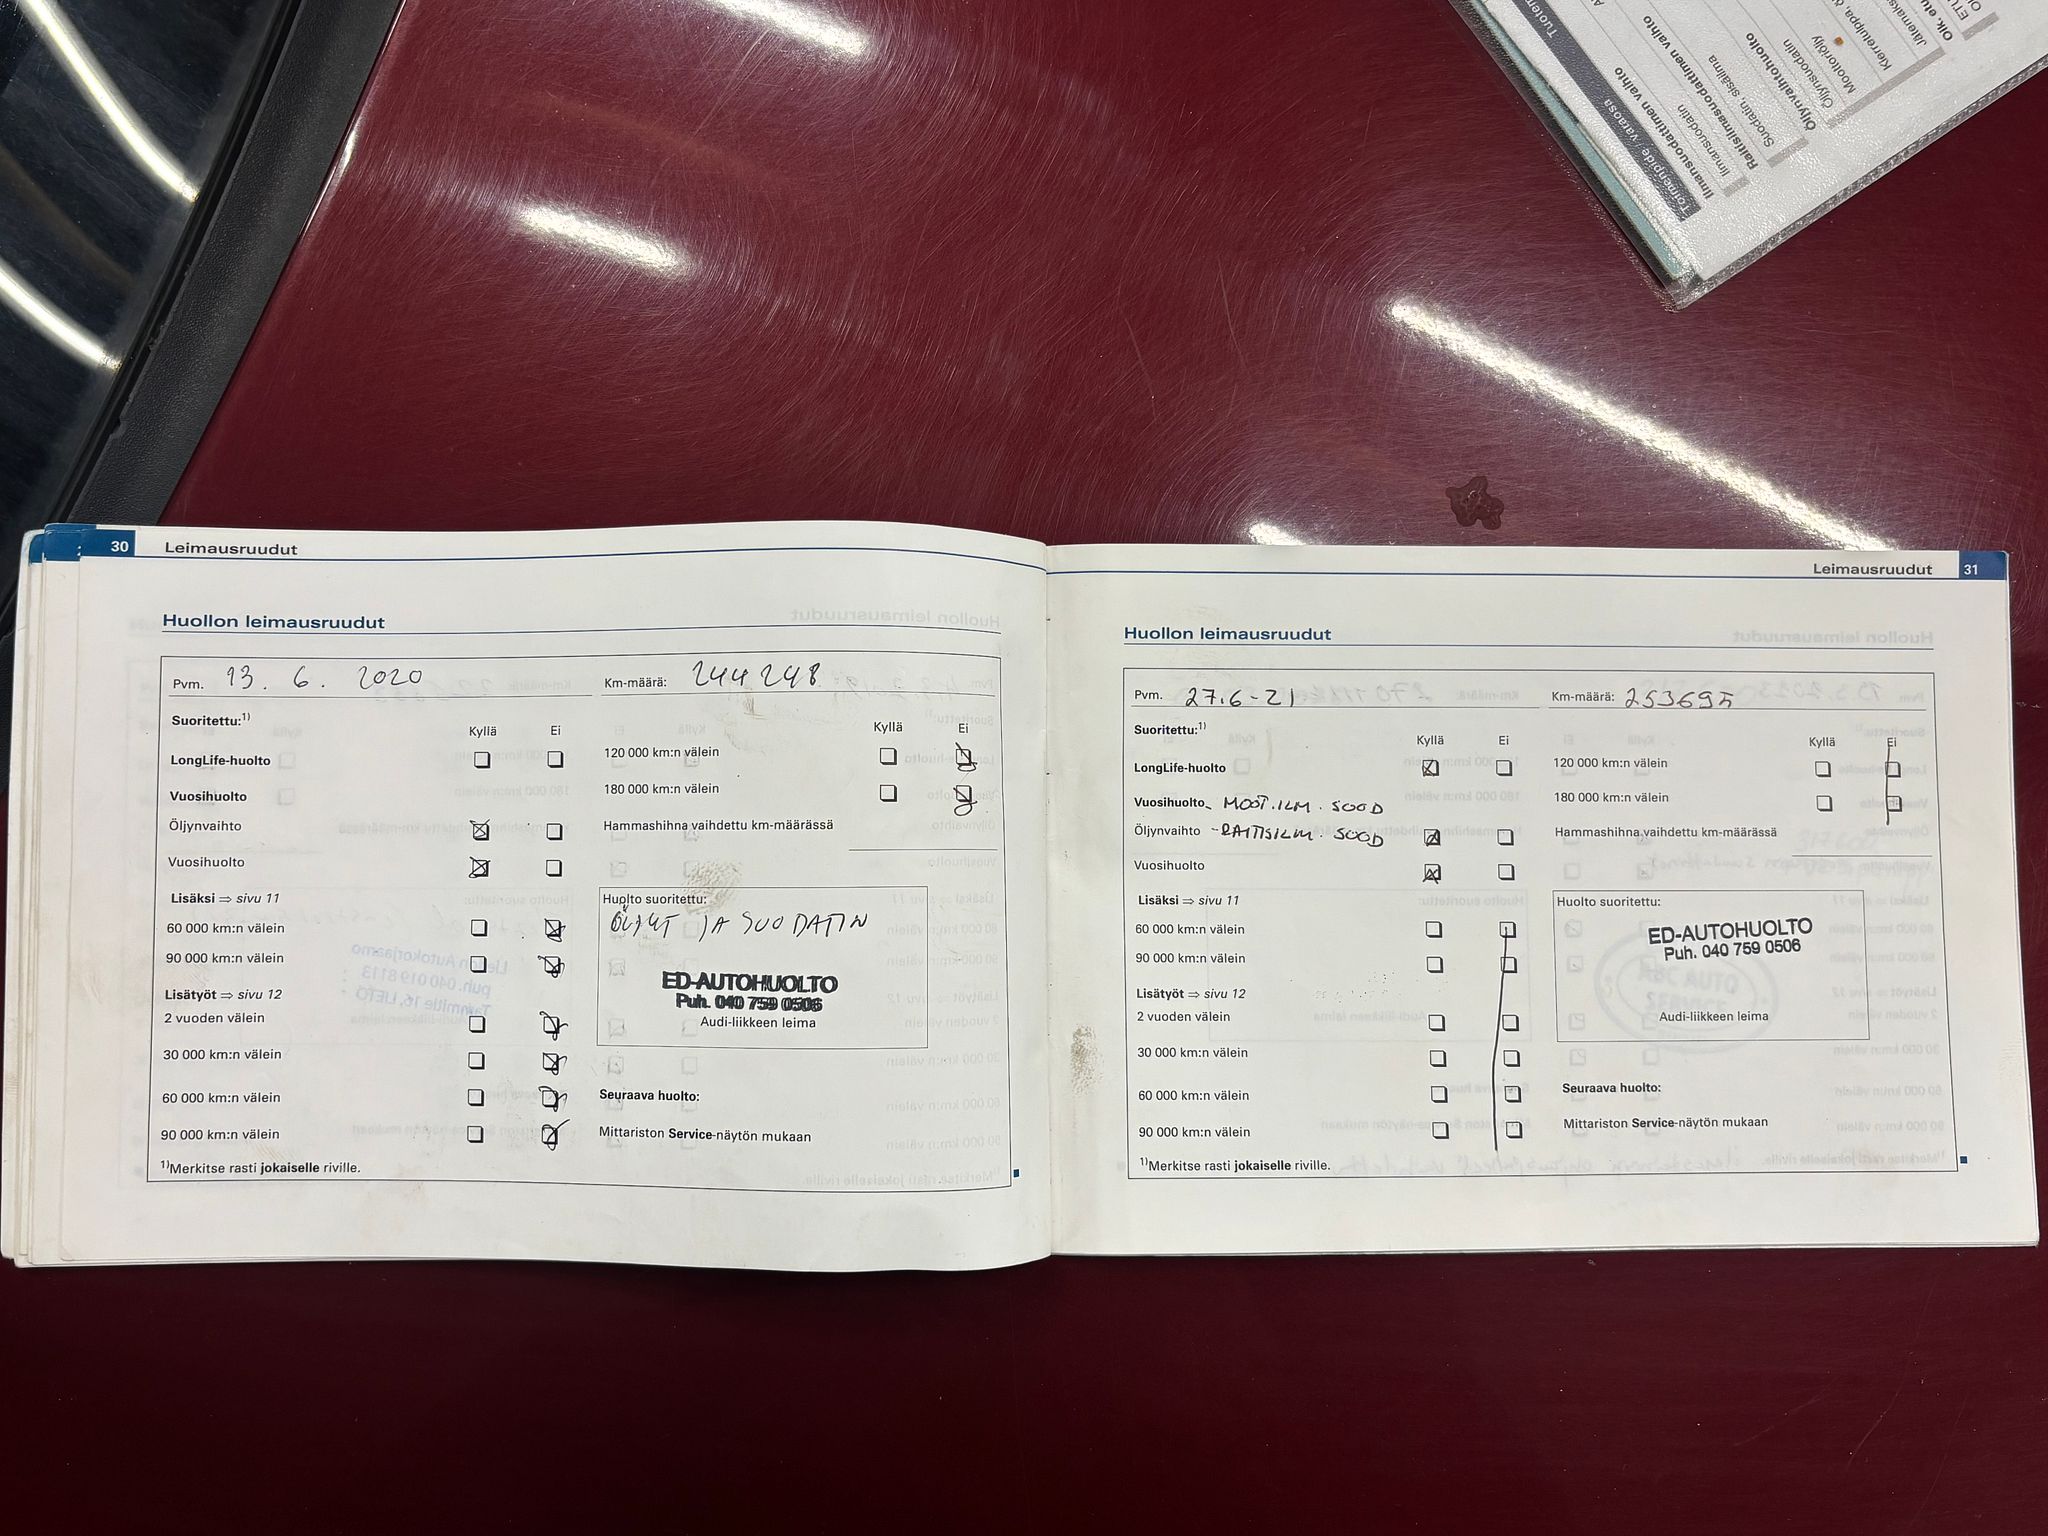 30 Leimausruudut
Huollon leimausruudut
Pvm. 13. 6. 2020 Km-määrä: 244248
Suoritettu:1)
Kyllä Ei
Kyllä Ei
LongLife-huolto
120 000 km:n välein
Vuosihuolto
180 000 km:n välein
Öljynvaihto
Hammashihna vaihdettu km-määrässä
Vuosihuolto
Lisäksi ⇒ sivu 11
Huolto suoritettu:
60 000 km:n välein
JA SUODATIN
90 000 km:n välein
ED-AUTOHUOLTO
Lisätyöt ⇒ sivu 12
Puh. 040 759 0506
2 vuoden välein
Audi-liikkeen leima
30 000 km:n välein
60 000 km:n välein
Seuraava huolto:
90 000 km:n välein
Mittariston Service-näytön mukaan
1)Merkitse rasti jokaiselle riville.
Leimausruudut 31
Huollon leimausruudut
Pvm. 27.6-21 Km-määrä: 253695
Suoritettu:1)
Kyllä Ei
Kyllä Ei
LongLife-huolto
120 000 km:n välein
Vuosihuolto - MOOT.ILM. SUOD
180 000 km:n välein
Öljynvaihto - RAITISILM. SUOD
Hammashihna vaihdettu km-määrässä
Vuosihuolto
Lisäksi ⇒ sivu 11
Huolto suoritettu:
60 000 km:n välein
ED-AUTOHUOLTO
Puh. 040 759 0506
90 000 km:n välein
Lisätyöt ⇒ sivu 12
2 vuoden välein
Audi-liikkeen leima
30 000 km:n välein
60 000 km:n välein
Seuraava huolto:
90 000 km:n välein
Mittariston Service-näytön mukaan
1)Merkitse rasti jokaiselle riville.
Toimenpide / varaosa
Ilmansuodattimen vaihto
Ilmansuodatin
Raitisilmasuodattimen vaihto
Suodatin, sisäilma
Öljynvaihtohuolto
Öljynsuodatin
Moottoriöljy
Kierretulppa,